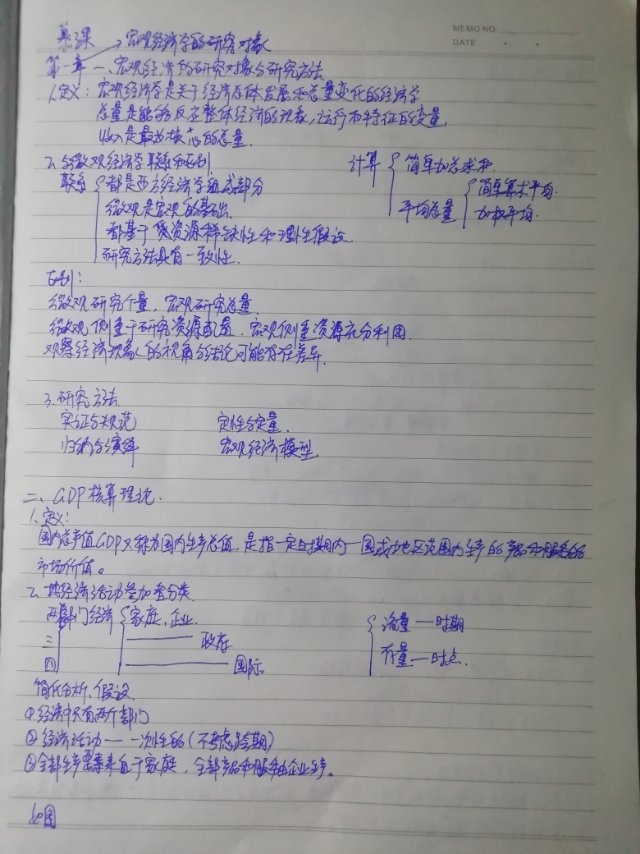 MEMO NO.
DATE
慕课 → 宏观经济学的研究对象
第一章 一、宏观经济的研究对象与研究方法
1.定义：宏观经济学是关于经济总体发展和总量变化的经济学
总量是能够反应整体经济的现存，运行和特征的变量，
收入是最为核心的总量.
2.与微观经济学联系和区别
联系 { 都是西方经济学组成部分
微观是宏观的基础.
都基于 资源稀缺性和理性假设.
研究方法具有一致性.
计算 { 简单加总求和.
平均总量 { 简单算术平均.
加权平均.
区别：
微观研究个量，宏观研究总量
微观侧重于研究资源配置，宏观侧重资源充分利用.
观察经济现象的视角与结论可能存在差异.
3.研究方法
实证与规范 定性与定量
归纳与演绎 宏观经济模型.
二、GDP核算理论.
1.定义：
国内总产值GDP又称为国内生产总值，是指一定时期内一国或地区范围内生产的产品和服务的
市场价值。
2.按经济活动参加者分类
两部门经济 { 家庭，企业.
三 —— 政府
四 —— 国际
{ 流量—时期
存量—时点.
简化分析，假设
①经济中只有两个部门
②经济活动——一次性的（不考虑跨期）
③全部生产要素来自于家庭，全部产品和服务由企业生产。
如图